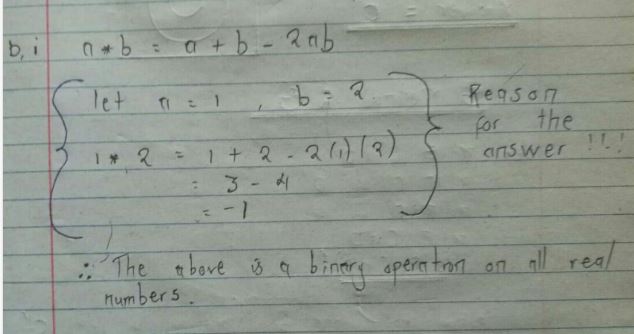 b, i a * b = a + b - 2ab
let a = 1 , b = 2.
1 * 2 = 1 + 2 - 2(1)(2)
= 3 - 4
= -1
Reason
for the
answer !!!
∴ The above is a binary operation on all real
numbers.